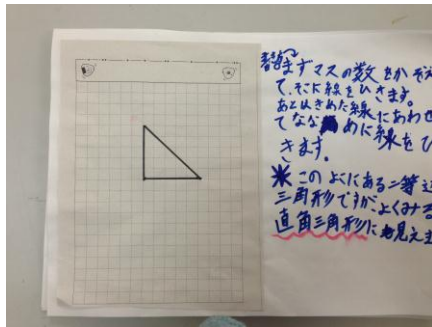 まずマスの数をかぞえ
て、そこに線をひきます。
あとはきめた線にあわせ
てななめに線をひ
きます。
※このよこにある二等辺
三角形ですが、よくみる
直角三角形にも見えま